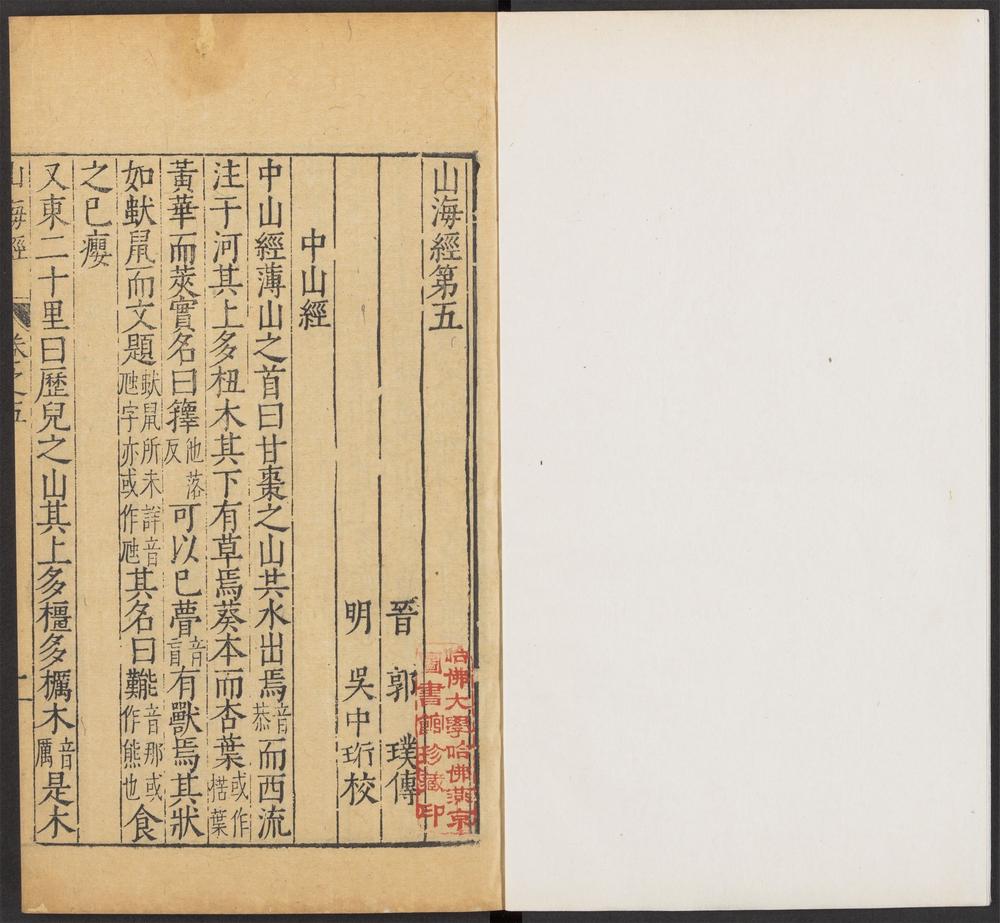 山海經第五
晉 郭 璞傳
明 吳中珩校
中山經
中山經薄山之首曰甘棗之山共水出焉音恭而西流
注于河其上多杻木其下有草焉葵本而杏葉或作楛葉
黃華而莢實名曰籜他落反可以已瞢音盲有獸焉其狀
如䑕鼠而文題䑕鼠所未詳音虺字亦或作虺其名曰㔮音那或作熊也食
之已癭
又東二十里曰歷兒之山其上多橿多櫔木音厲是木
山海經 卷之五 一
哈佛大學哈佛燕京
圖書館珍藏印